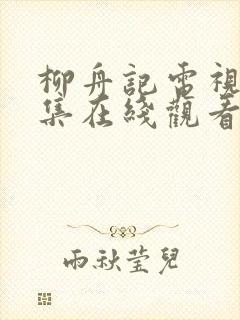 柳舟記電視
集在綫觀看
雨秋莹兒